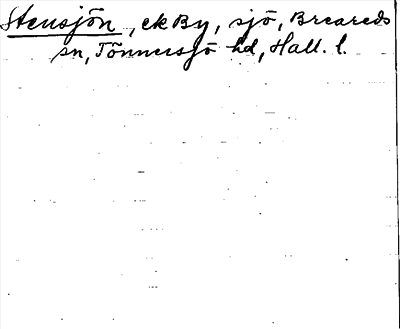 Stensjön, ekBy, sjö, Breareds
sn, Tönnersjö hd, Hall. l.